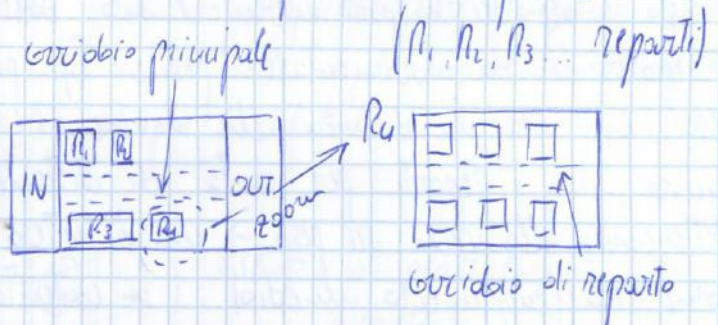 corridoio principale
(R1, R2, R3 ... reparti)
IN
R1
R2
R3
R4
OUT
zoom
R4
corridoio di reparto